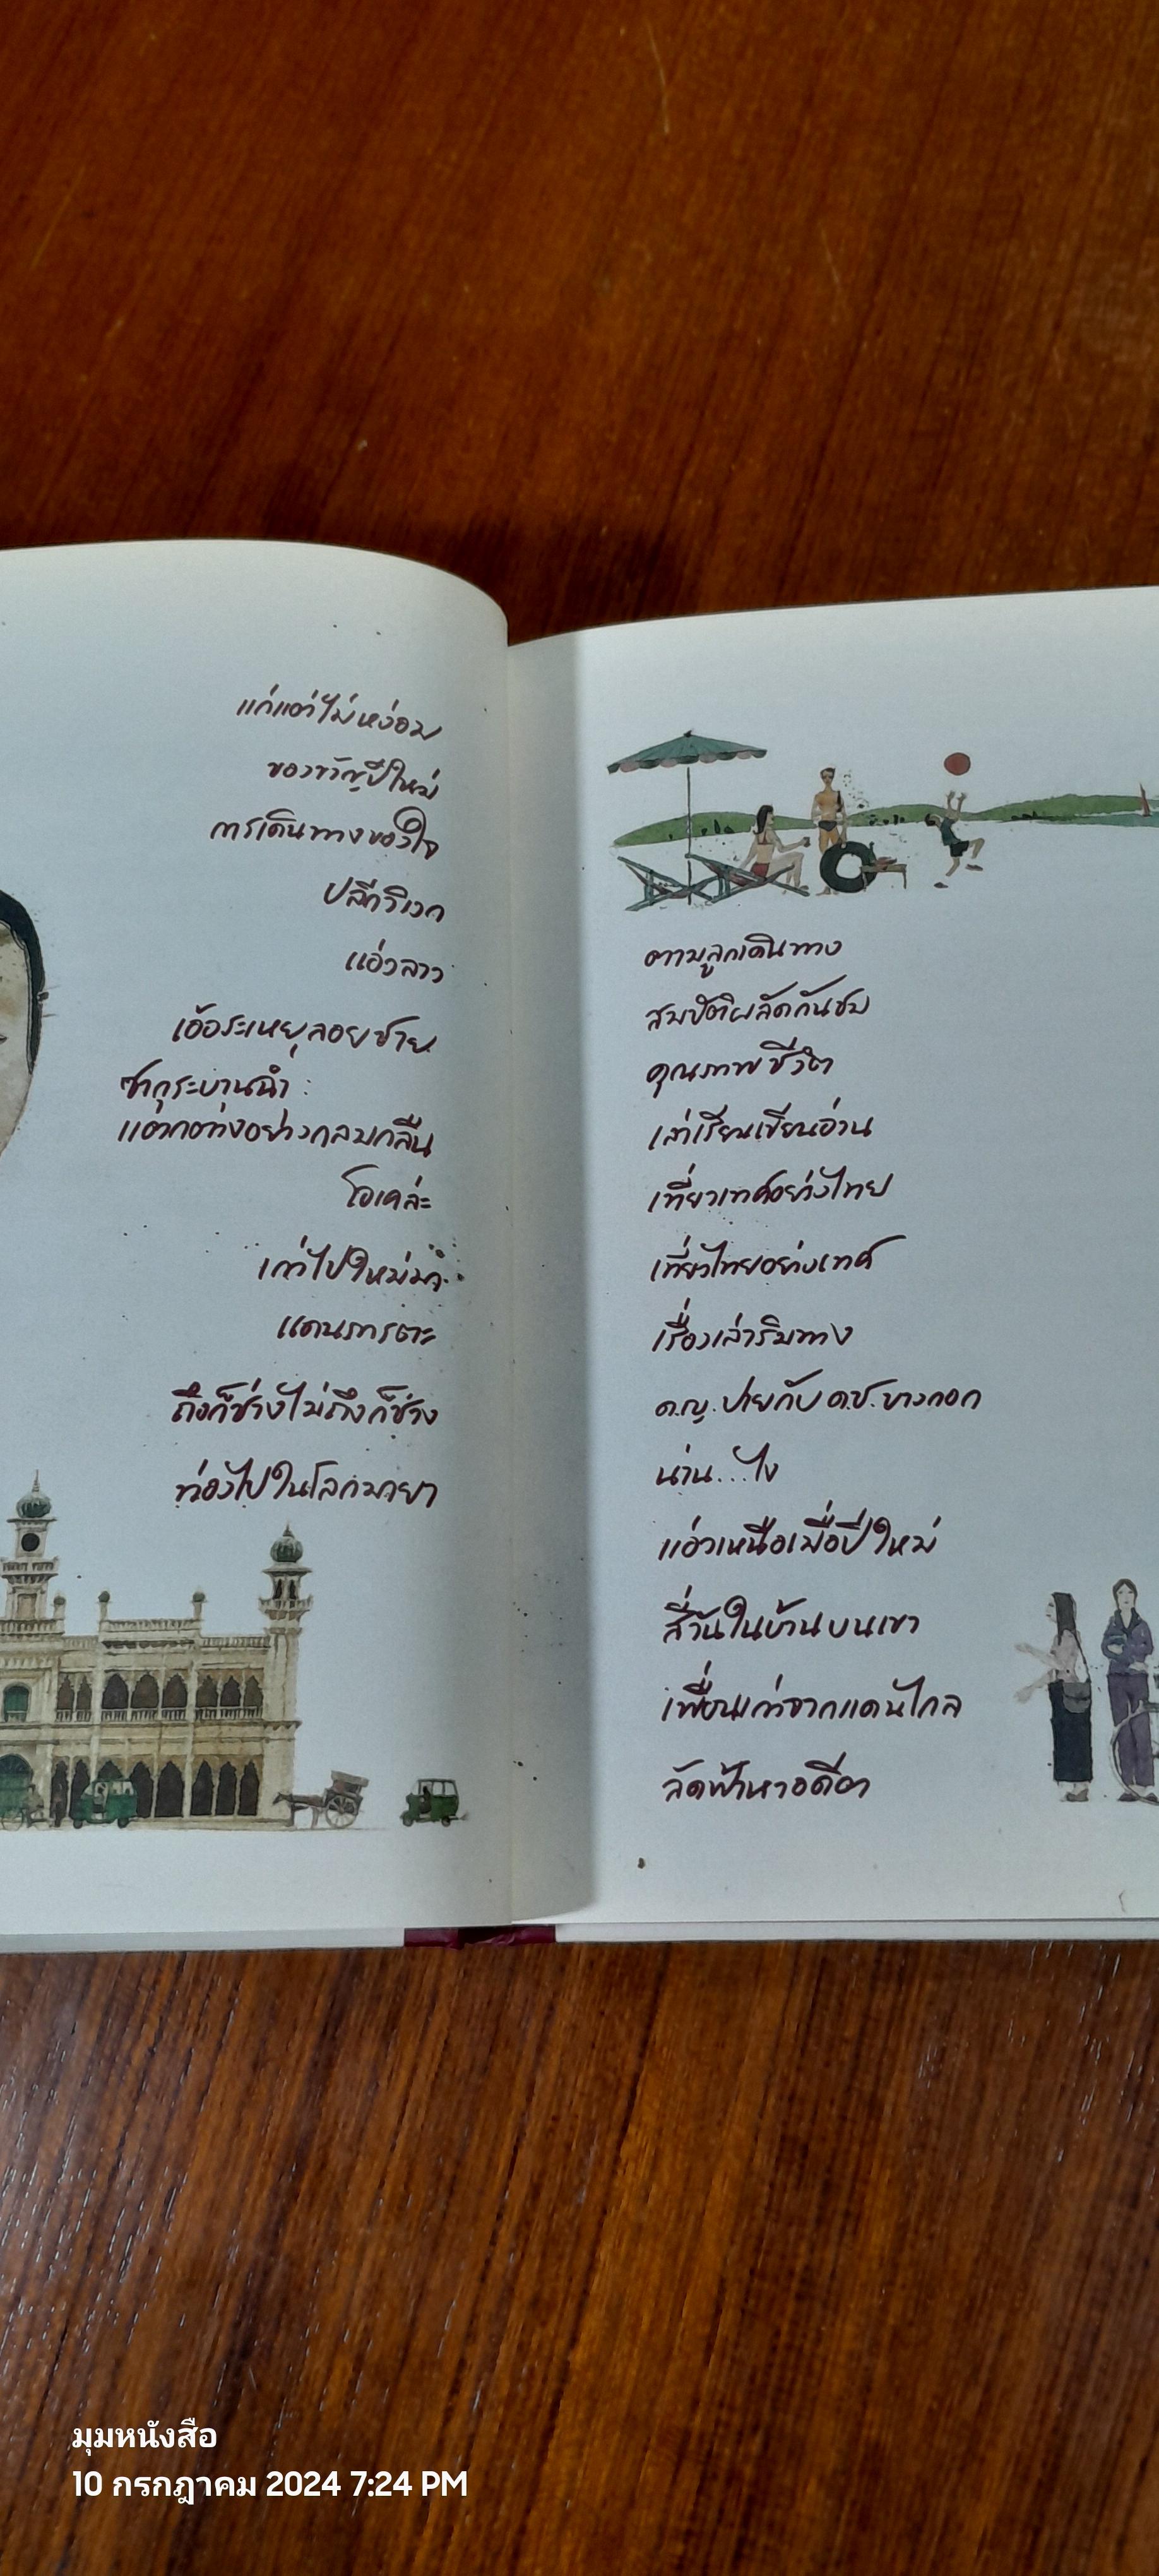 แก่แต่ไม่หง่อม
ของขวัญปีใหม่
การเดินทางของใจ
ปลีกวิเวก
แอ่วลาว
เอ้อระเหยลอยชาย
ซากุระบานฉ่ำ :
แตกต่างอย่างกลมกลืน
โอเคล่ะ
เก่าไปใหม่มา
แดนภารตะ
ถึงก็ช่างไม่ถึงก็ช่าง
ท่องไปในโลกมายา
ตามลูกเดินทาง
สมบัติผลัดกันชม
คุณภาพชีวิต
เล่าเรียนเขียนอ่าน
เที่ยวเทศอย่างไทย
เที่ยวไทยอย่างเทศ
เรื่องเล่าริมทาง
ด.ญ.ปายกับ ด.ช.บางกอก
น่าน...ไง
แอ่วเหนือเมื่อปีใหม่
สี่วันในบ้านบนเขา
เพื่อนเก่าจากแดนไกล
ลัดฟ้าหาอดีต
มุมหนังสือ
10 กรกฎาคม 2024 7:24 PM